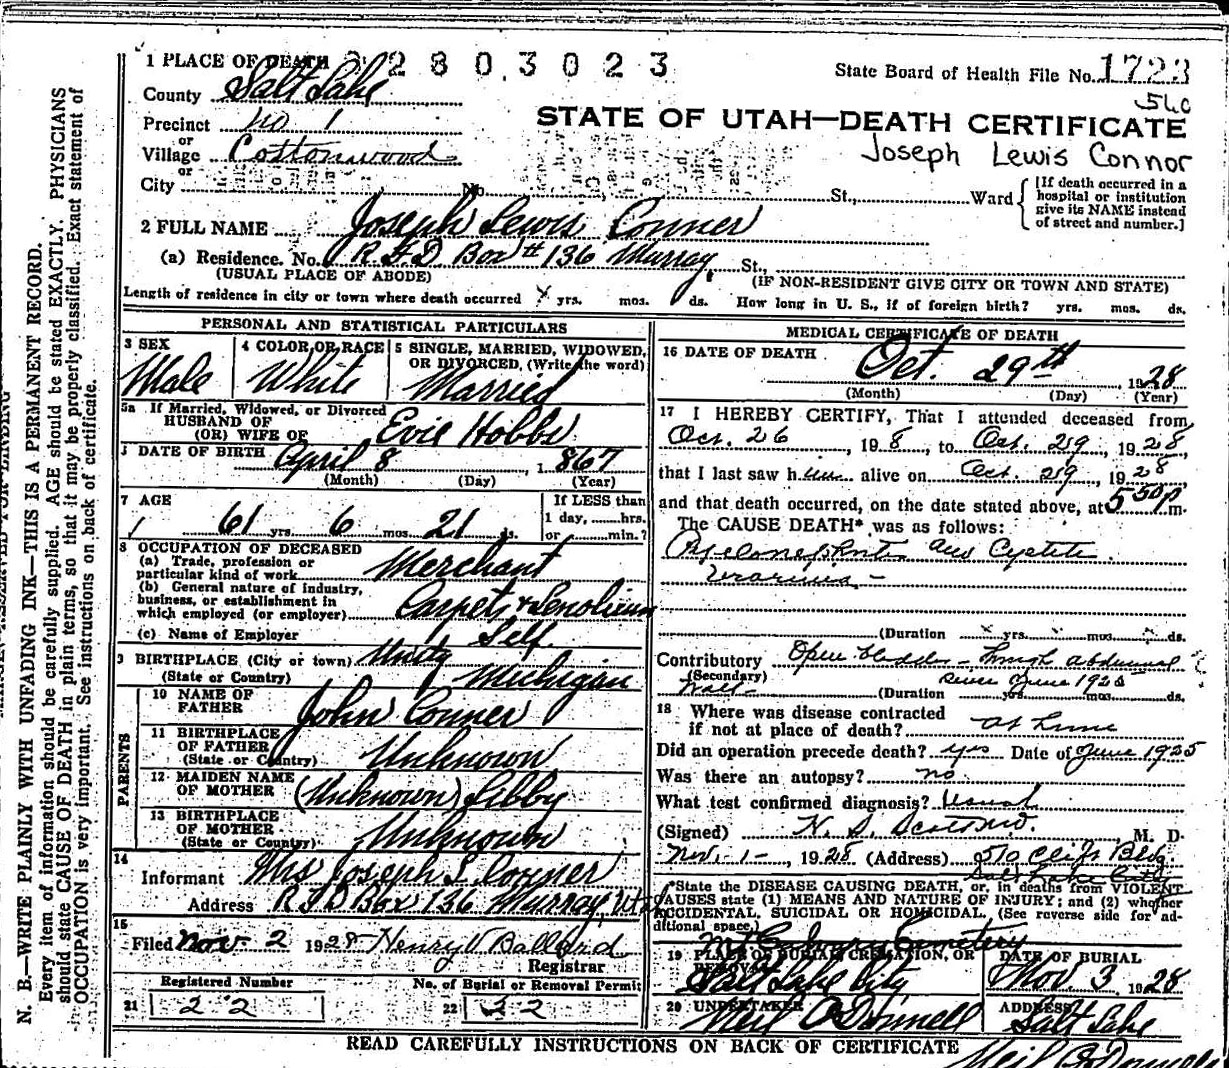 1 PLACE OF DEATH 2 8 0 3 0 2 3
State Board of Health File No. 1723
County Salt Lake
560
STATE OF UTAH—DEATH CERTIFICATE
Precinct No 1
or
Village Cottonwood
Joseph Lewis Connor
or
City No. St., Ward
[If death occurred in a hospital or institution give its NAME instead of street and number.]
2 FULL NAME Joseph Lewis Conner
(a) Residence. No. R F D Box # 136 Murray, St.,
(USUAL PLACE OF ABODE) (IF NON-RESIDENT GIVE CITY OR TOWN AND STATE)
Length of residence in city or town where death occurred yrs. mos. ds. How long in U. S., if of foreign birth? yrs. mos. ds.
PERSONAL AND STATISTICAL PARTICULARS
3 SEX
Male
4 COLOR OR RACE
White
5 SINGLE, MARRIED, WIDOWED,
OR DIVORCED, (Write the word)
Married
5a If Married, Widowed, or Divorced
HUSBAND OF
(OR) WIFE OF Evie Hobbs
DATE OF BIRTH April 8, 1867
(Month) (Day) (Year)
7 AGE
61 yrs. 6 mos. 21 ds.
If LESS than
1 day, hrs.
or min.?
8 OCCUPATION OF DECEASED
(a) Trade, profession or
particular kind of work Merchant
(b) General nature of industry,
business, or establishment in
which employed (or employer) Carpets & Lenolieum
(c) Name of Employer Self.
9 BIRTHPLACE (City or town) Unity
(State or Country) Michigan
PARENTS
10 NAME OF
FATHER John Conner
11 BIRTHPLACE
OF FATHER
(State or Country) Unknown
12 MAIDEN NAME
OF MOTHER (Unknown) Libby
13 BIRTHPLACE
OF MOTHER
(State or Country) Unknown
14
Informant Mrs Joseph L Conner
Address R F D Box 136 Murray, Utah
15
Filed Nov. 2 1928 Henry W Ballard
Registrar
Registered Number
21 22
No. of Burial or Removal Permit
22 22
MEDICAL CERTIFICATE OF DEATH
16 DATE OF DEATH Oct. 29th, 1928
(Month) (Day) (Year)
17 I HEREBY CERTIFY, That I attended deceased from
Oct. 26, 19 8, to Oct. 29, 1928,
that I last saw him alive on Oct. 29, 1928
and that death occurred, on the date stated above, at 5 50 p m.
The CAUSE DEATH* was as follows:
Pyelonephritis and Cystitis.
Uraemia -
(Duration yrs. mos. ds.
Contributory Open bladder - through abdominal
(Secondary) since June 1925
wall - (Duration yrs. mos. ds.
18 Where was disease contracted
if not at place of death? at home
Did an operation precede death? yes Date of June 1925
Was there an autopsy? no
What test confirmed diagnosis? Usual
(Signed) M. D.
Nov. 1 -, 1928 (Address) 510 Clift Bldg.
Salt Lake City
*State the DISEASE CAUSING DEATH, or, in deaths from VIOLENT
CAUSES state (1) MEANS AND NATURE OF INJURY; and (2) whether
ACCIDENTAL, SUICIDAL OR HOMICIDAL. (See reverse side for ad-
ditional space.)
Mt Calvary Cemetery
19 PLACE OF BURIAL, CREMATION, OR
REMOVAL
Salt Lake City
DATE OF BURIAL
Nov 3 1928
20 UNDERTAKER
Neil O'Donnell
ADDRESS
Salt Lake
READ CAREFULLY INSTRUCTIONS ON BACK OF CERTIFICATE
Neil O'Donnell
N. B.—WRITE PLAINLY WITH UNFADING INK—THIS IS A PERMANENT RECORD.
Every item of information should be carefully supplied. AGE should be stated EXACTLY. PHYSICIANS
should state CAUSE OF DEATH in plain terms, so that it may be properly classified. Exact statement of
OCCUPATION is very important. See instructions on back of certificate.